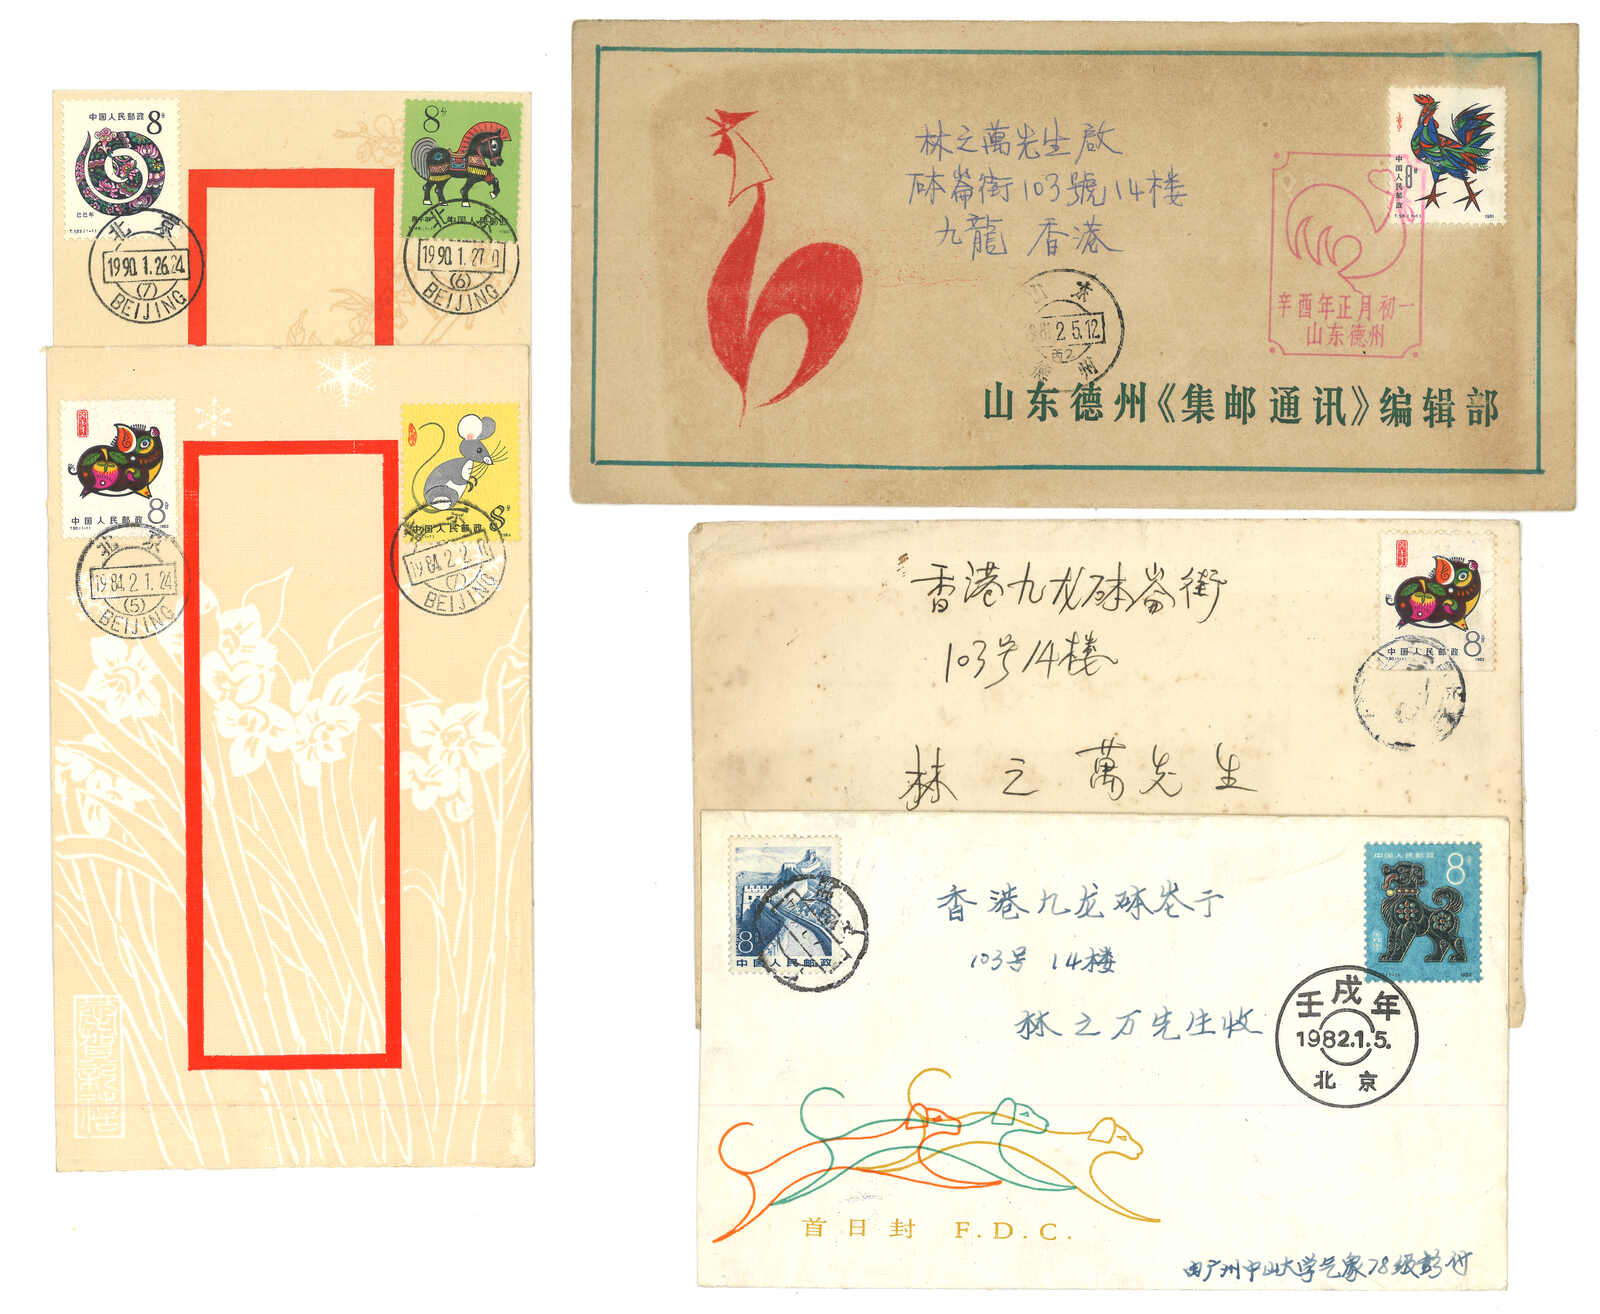 中国人民邮政
8分
己巳年
T.133.(1-1)
8分
中国人民邮政
北京
1990.1.26.24
(7)
BEIJING
北京
1990.1.27.0
(6)
BEIJING
8分
中国人民邮政
T.80.(1-1) 1983
中国人民邮政
8分
北京
1984.2.1.24
(5)
BEIJING
北京
1984.2.2.0
(7)
BEIJING
恭贺新禧
林之萬先生啟
砵崙街103號14樓
九龍 香港
中国人民邮政
8分
1981
辛酉年正月初一
山东德州
山东
2.5.12
州
山东德州《集邮通讯》编辑部
香港九龙砵崙街
103号14楼
林之萬先生
8分
中国人民邮政
T.80.(1-1) 1983
8
中国人民邮政
香港九龙砵岺于
103号 14楼
林之万先生收
中国人民邮政
8分
1982
壬戌年
1982.1.5.
北京
首日封 F.D.C.
由广州中山大学气象78级彭付